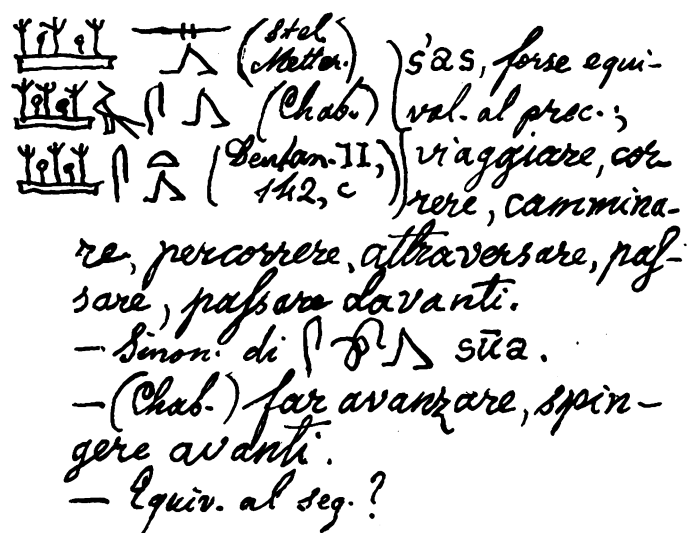 (stel. Metter.) s'as, forse equi-
(Chab.) val. al prec.;
(Denfan. II, 142, c) viaggiare, cor
rere, cammina-
re, percorrere, attraversare, pas-
sare, passare davanti.
— Sinon. di sūa.
— (Chab.) far avanzare, spin-
gere avanti.
— Equiv. al seg.?